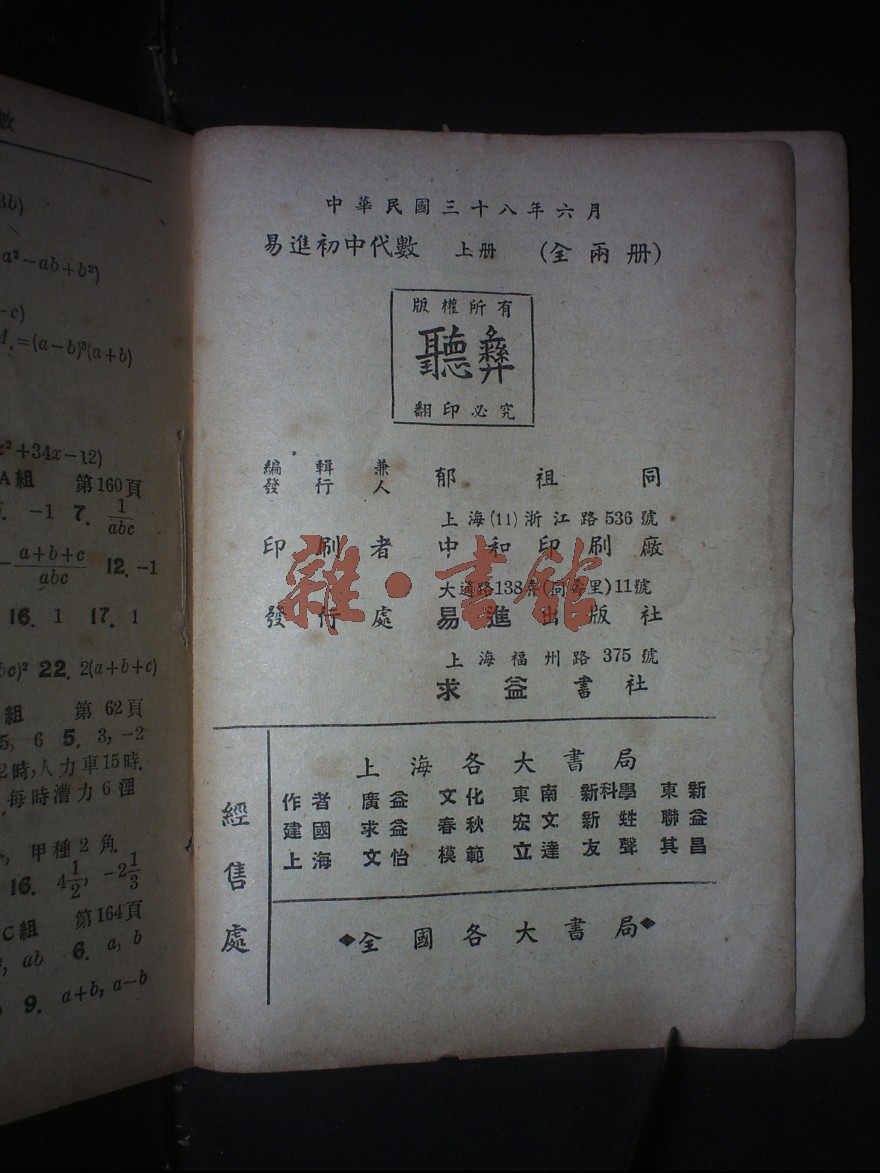 數
3b)
a²-ab+b²)
-c)
=(a-b)³(a+b)
x²+34x-12)
A組 第160頁
-1 7. 1/abc
-(a+b+c)/abc 12. -1
16. 1 17. 1
bc)² 22. 2(a+b+c)
組 第62頁
5, 6 5. 3, -2
2時,人力車15時.
每時漕力6浬
甲種2角.
16. 4 1/2, -2 1/3
C組 第164頁
, ab 6. a, b
9. a+b, a-b
中華民國三十八年六月
易進初中代數 上册 (全兩册)
版權所有
聽彝
翻印必究
編輯兼
發行人 郁祖同
上海(11)浙江路536號
印刷者 中和印刷廠
大通路138弄(同壽里)11號
發行處 易進出版社
上海福州路375號
求益書社
經售處
上海各大書局
作者 廣益 文化 東南 新科學 東新
建國 求益 春秋 宏文 新甡 聯益
上海 文怡 模範 立達 友聲 其昌
◆全國各大書局◆
雜·書館